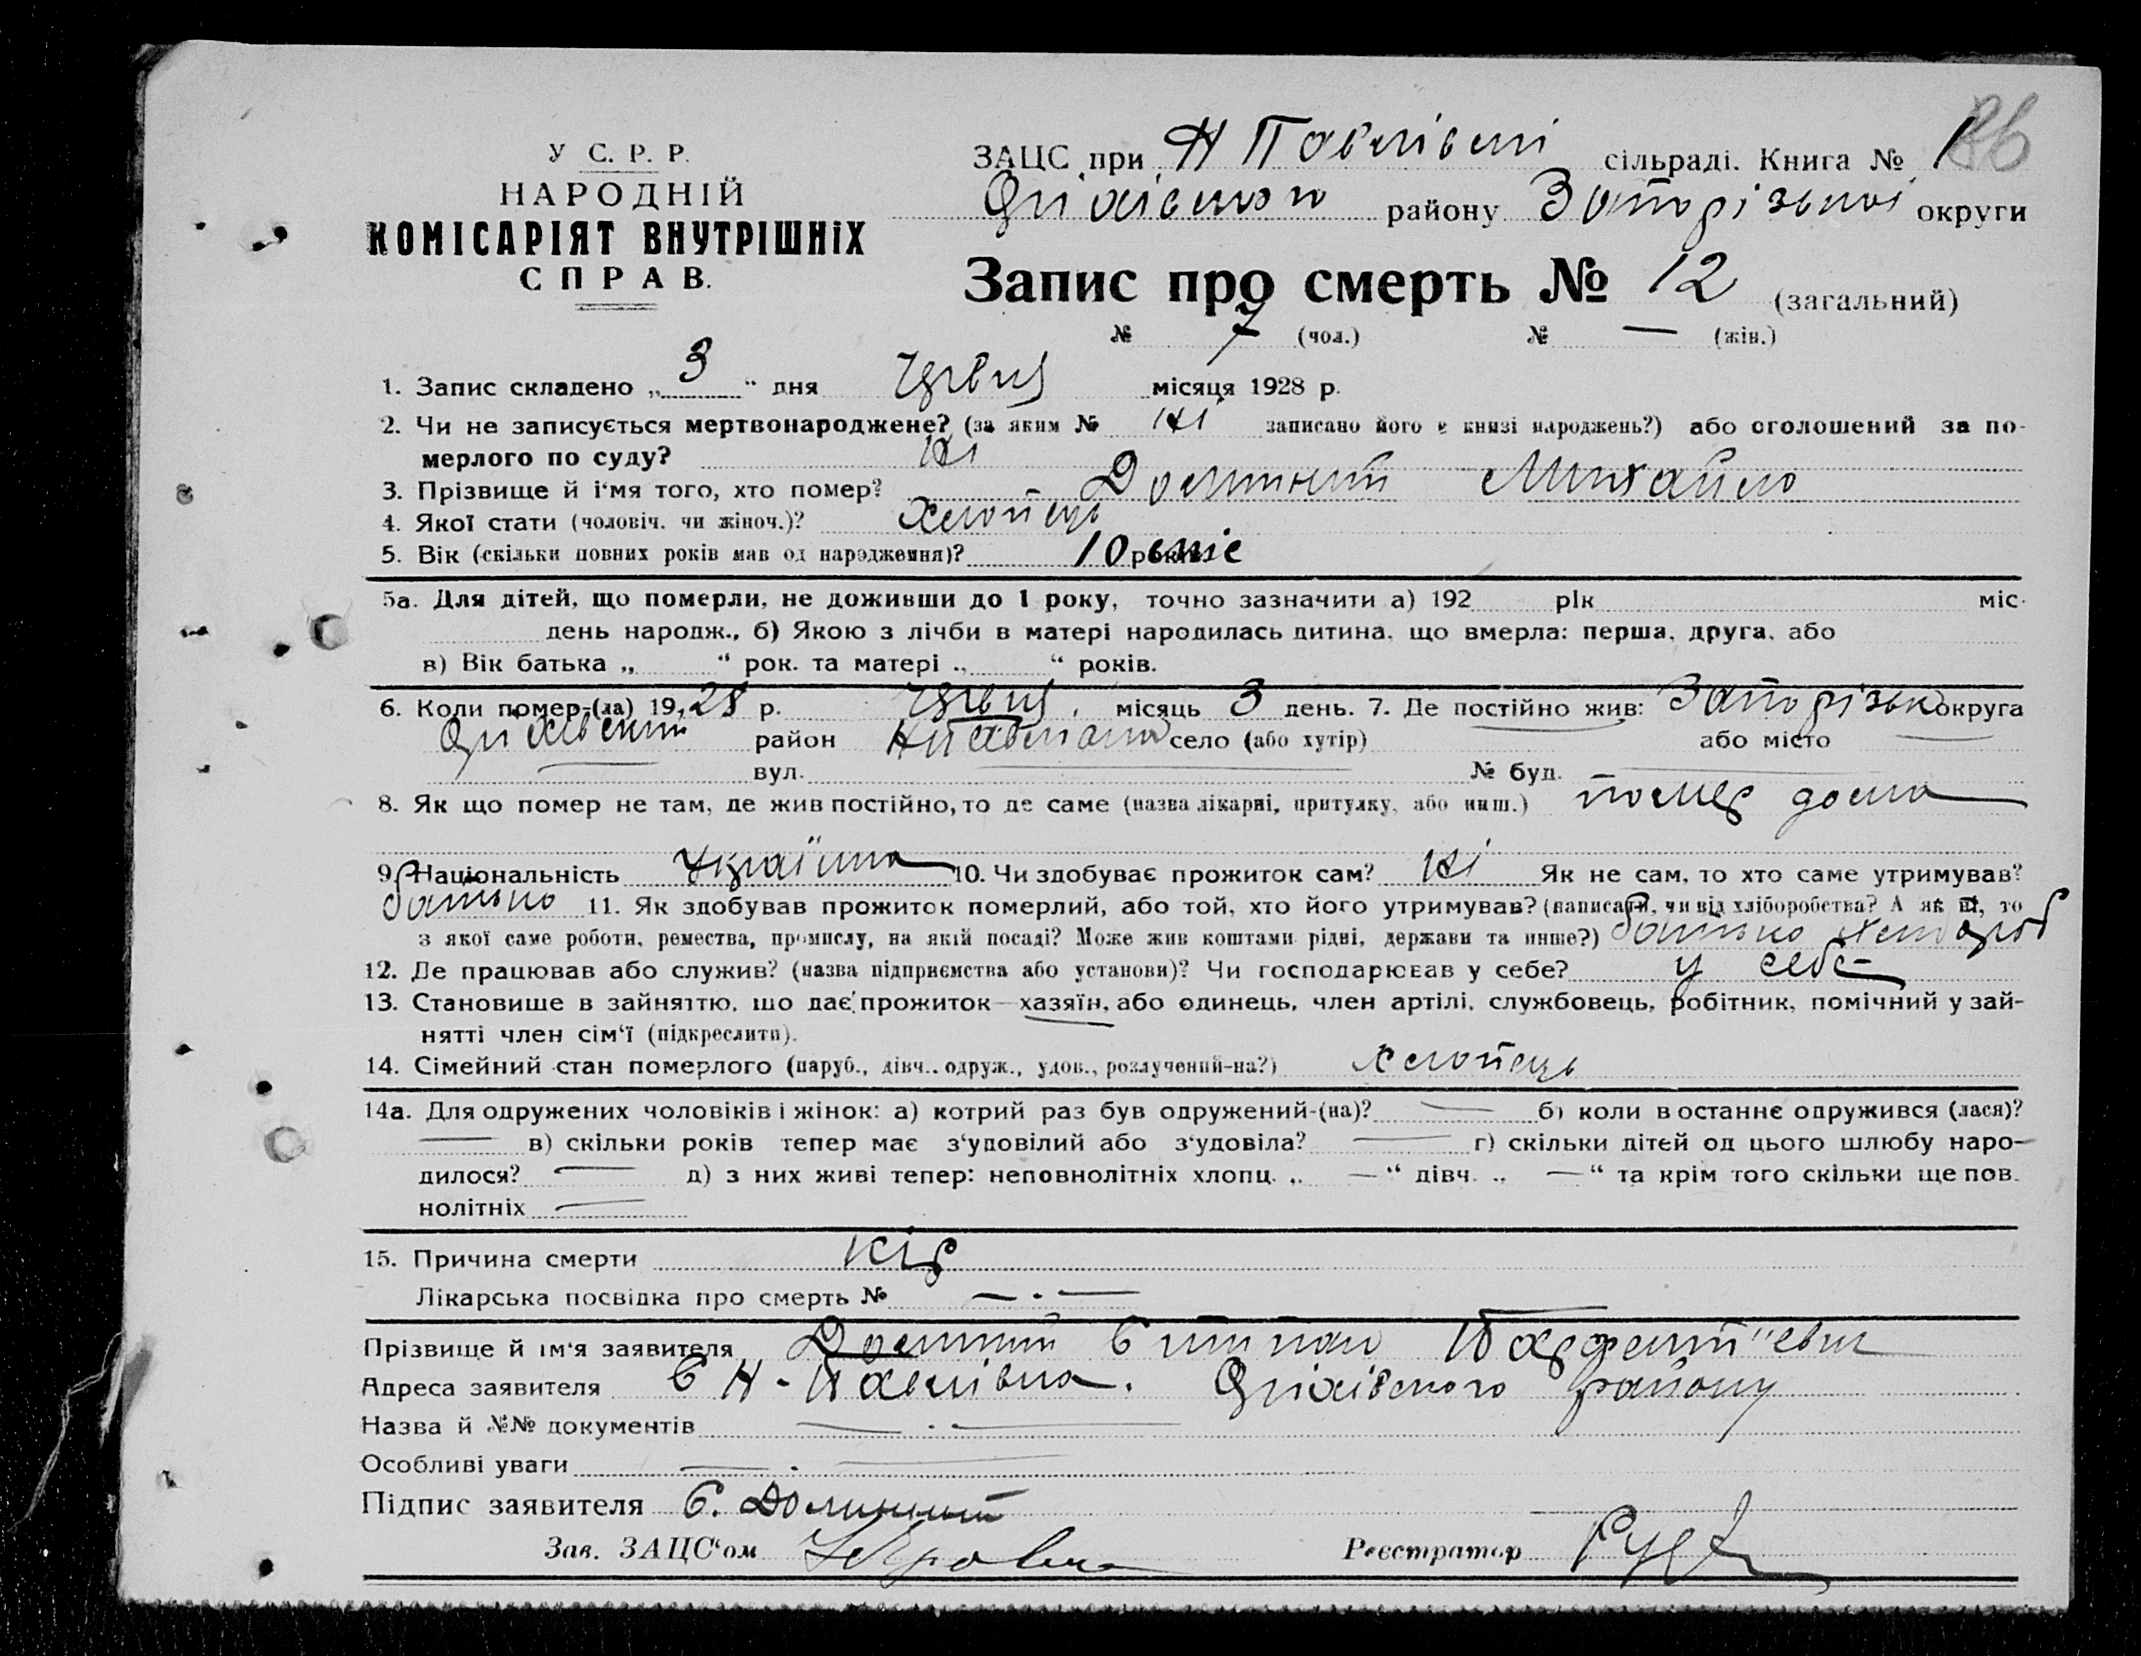 У С. Р. Р.
НАРОДНІЙ
КОМІСАРІЯТ ВНУТРІШНІХ
СПРАВ.
ЗАЦС при Н Павлівській сільраді. Книга № 1
Оріхівського району Запорізької округи
Запис про смерть № 12 (загальний)
№ 7 (чол.) № — (жін.)
1. Запис складено „ 3 “ дня червня місяця 1928 р.
2. Чи не записується мертвонароджене? (за яким № ні записано його в книзі народжень?) або оголошений за по-
мерлого по суду? ні
3. Прізвище й і‘мя того, хто помер? Долинний Михайло
4. Якої стати (чоловіч. чи жіноч.)? Хлопець
5. Вік (скільки повних років мав од народження)? 10 років
5а. Для дітей, що померли, не доживши до 1 року, точно зазначити а) 192 рік міс.
день народж., б) Якою з лічби в матері народилась дитина, що вмерла: перша, друга, або
в) Вік батька „ “ рок. та матері „ “ років.
6. Коли помер-(ла) 1928 р. червня місяць 3 день. 7. Де постійно жив: Запорізька округа
Оріхівський район Н Павлівка село (або хутір) або місто —
— вул. — № буд. —
8. Як що помер не там, де жив постійно, то де саме (назва лікарні, притулку, або инш.) помер дома
9. Національність Україна 10. Чи здобуває прожиток сам? ні Як не сам, то хто саме утримував?
батько 11. Як здобував прожиток померлий, або той, хто його утримував? (написати, чи від хліборобства? А як ні, то
з якої саме роботи, ремества, промислу, на якій посаді? Може жив коштами рідні, держави та инше?) батько хлібороб
12. Де працював або служив? (назва підприємства або установи)? Чи господарював у себе? у себе
13. Становище в зайняттю, що дає прожиток—хазяїн, або одинець, член артілі, службовець, робітник, помічний у зай-
нятті член сім‘ї (підкреслити).
14. Сімейний стан померлого (паруб., дівч., одруж., удов., розлучений-на?) хлопець
14а. Для одружених чоловіків і жінок: а) котрий раз був одружений-(на)? — б) коли в останнє одружився (лася)?
— в) скільки років тепер має з‘удовілий або з‘удовіла? — г) скільки дітей од цього шлюбу наро-
дилося? — д) з них живі тепер: неповнолітніх хлопц. „ — “ дівч. „ — “ та крім того скільки ще пов.
нолітніх —
15. Причина смерти кір
Лікарська посвідка про смерть № — . —
Прізвище й ім‘я заявителя Долинний Степан Парфентієвич
Адреса заявителя С Н-Павлівка. Оріхівського району
Назва й №№ документів — . —
Особливі уваги — . —
Підпис заявителя С. Долинний
Зав. ЗАЦС‘ом
Реєстратор